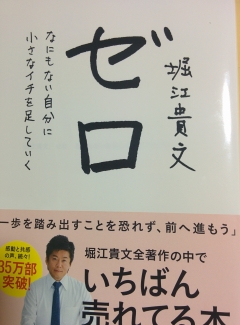 ゼロ
堀江貴文
なにもない自分に
小さなイチを足していく
一歩を踏み出すことを恐れず、前へ進もう」
感動と共感
の声、続々!
35万部
突破!
堀江貴文全著作の中で
いちばん
売れてる本